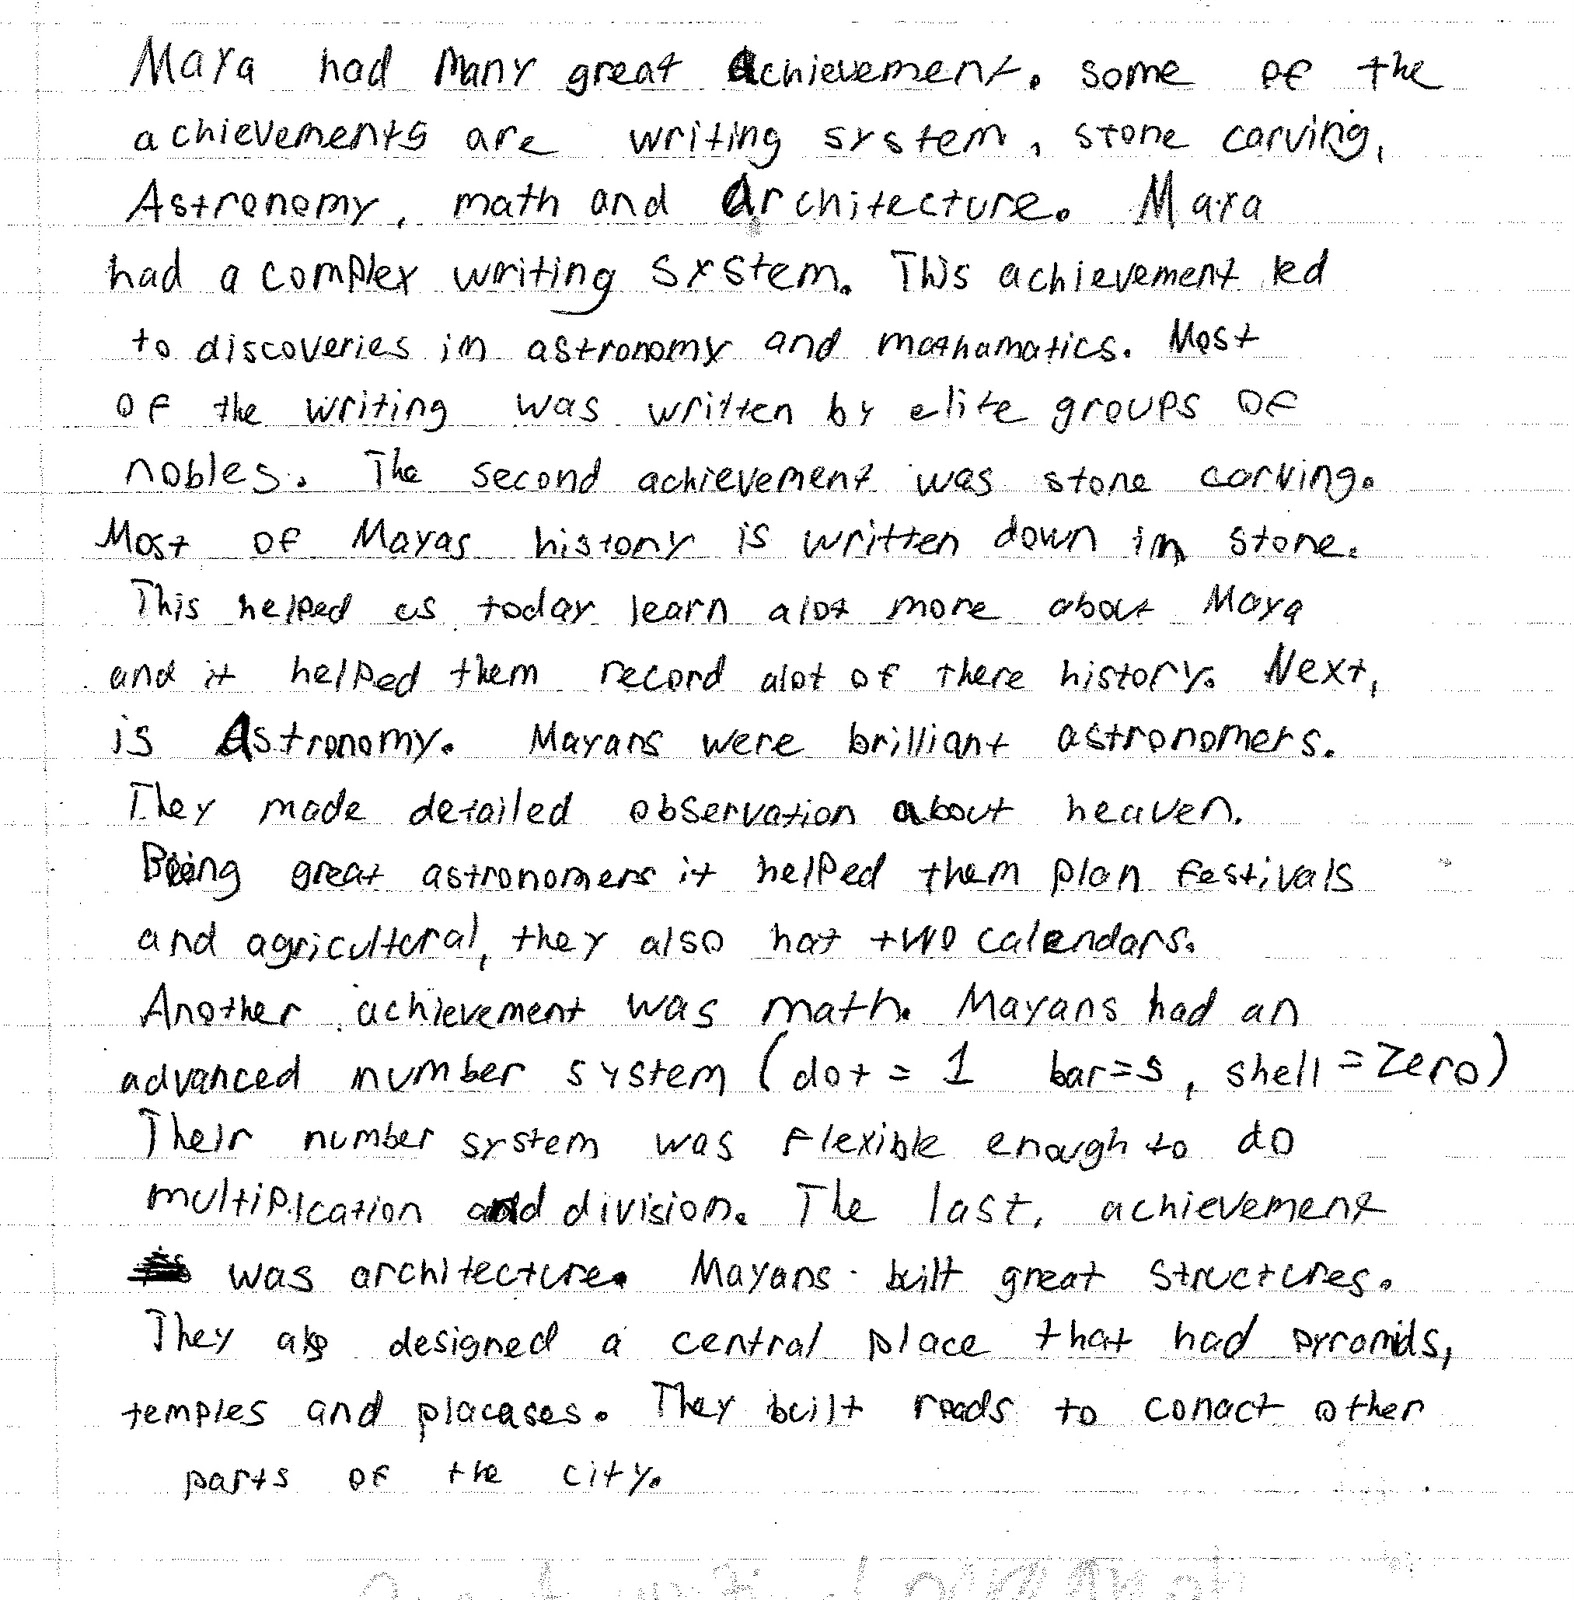 Maya had Many great Achievement. some of the
achievements are writing system, stone carving,
Astronomy, math and Architecture. Maya
had a complex writing system. This achievement led
to discoveries in astronomy and mathamatics. Most
of the writing was written by elite groups of
nobles. The second achievement was stone carving.
Most of Mayas history is written down in stone.
This helped us today learn alot more about Maya
and it helped them record alot of there history. Next,
is Astronomy. Mayans were brilliant astronomers.
They made detailed observation about heaven.
Being great astronomers it helped them plan festivals
and agricultural, they also hat two calendars.
Another achievement was math. Mayans had an
advanced number system (dot = 1 bar=5, shell = Zero)
Their number system was flexible enough to do
multiplication and division. The last, achievement
was architecture. Mayans built great structures.
They also designed a central place that had pyramids,
temples and placases. They built roads to conact other
parts of the city.